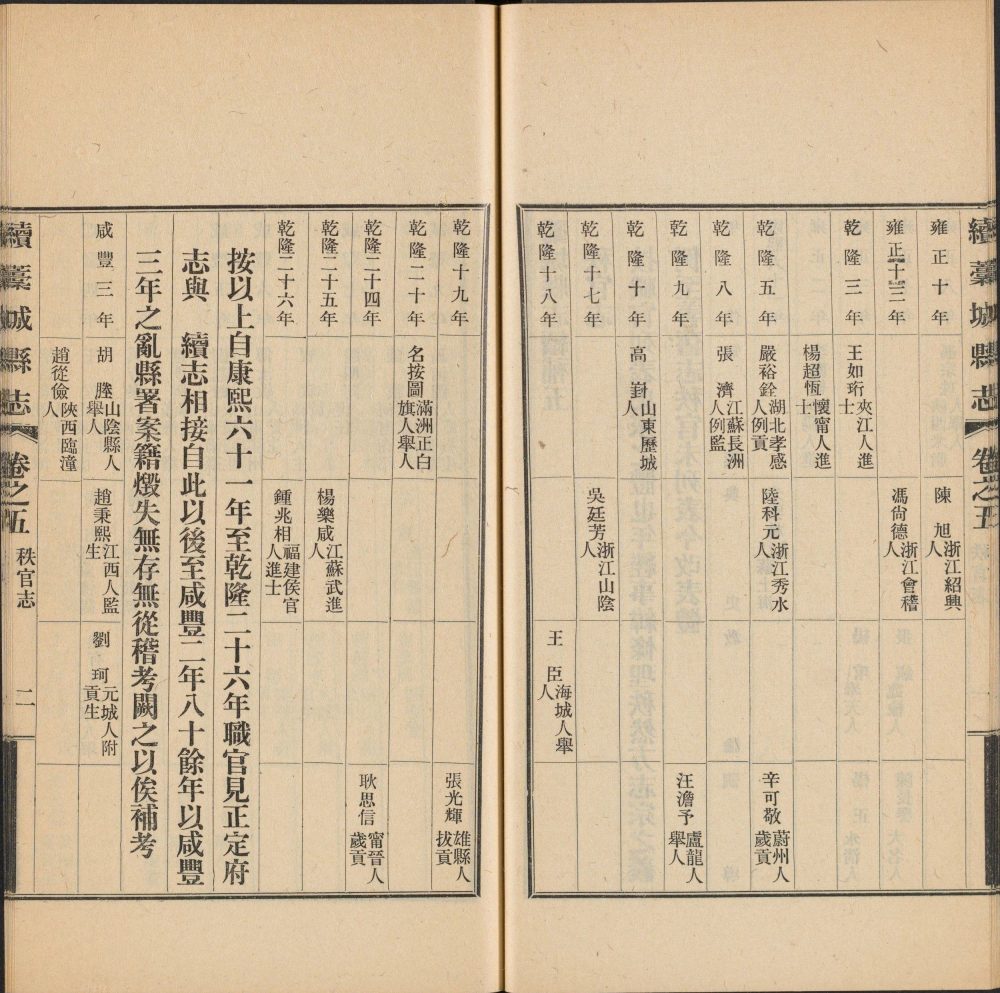 續藁城縣志 卷之五 一
雍正十年 陳旭浙江紹興人
雍正十三年 馮尙德浙江會稽人
乾隆三年 王如珩夾江人進士
楊超恆懷甯人進士
乾隆五年 嚴裕銓湖北孝感人例貢 陸科元浙江秀水人 辛可敬蔚州人歲貢
乾隆八年 張濟江蘇長洲人例監
乾隆九年 汪澹予盧龍人舉人
乾隆十年 高崶山東歷城人
乾隆十七年 吳廷芳浙江山陰人
乾隆十八年 王臣海城人舉人
乾隆十九年 張光輝雄縣人拔貢
乾隆二十年 名按圖滿洲正白旗人舉人
乾隆二十四年 耿思信甯晉人歲貢
乾隆二十五年 楊樂咸江蘇武進人
乾隆二十六年 鍾兆相福建侯官人進士
按以上自康熙六十一年至乾隆二十六年職官見正定府
志與 續志相接自此以後至咸豐二年八十餘年以咸豐
三年之亂縣署案籍燬失無存無從稽考闕之以俟補考
咸豐三年 胡塍山陰縣人舉人 趙秉熙江西人監生 劉珂元城人附貢生
趙從儉陝西臨潼人
續藁城縣志 卷之五 秩官志 二